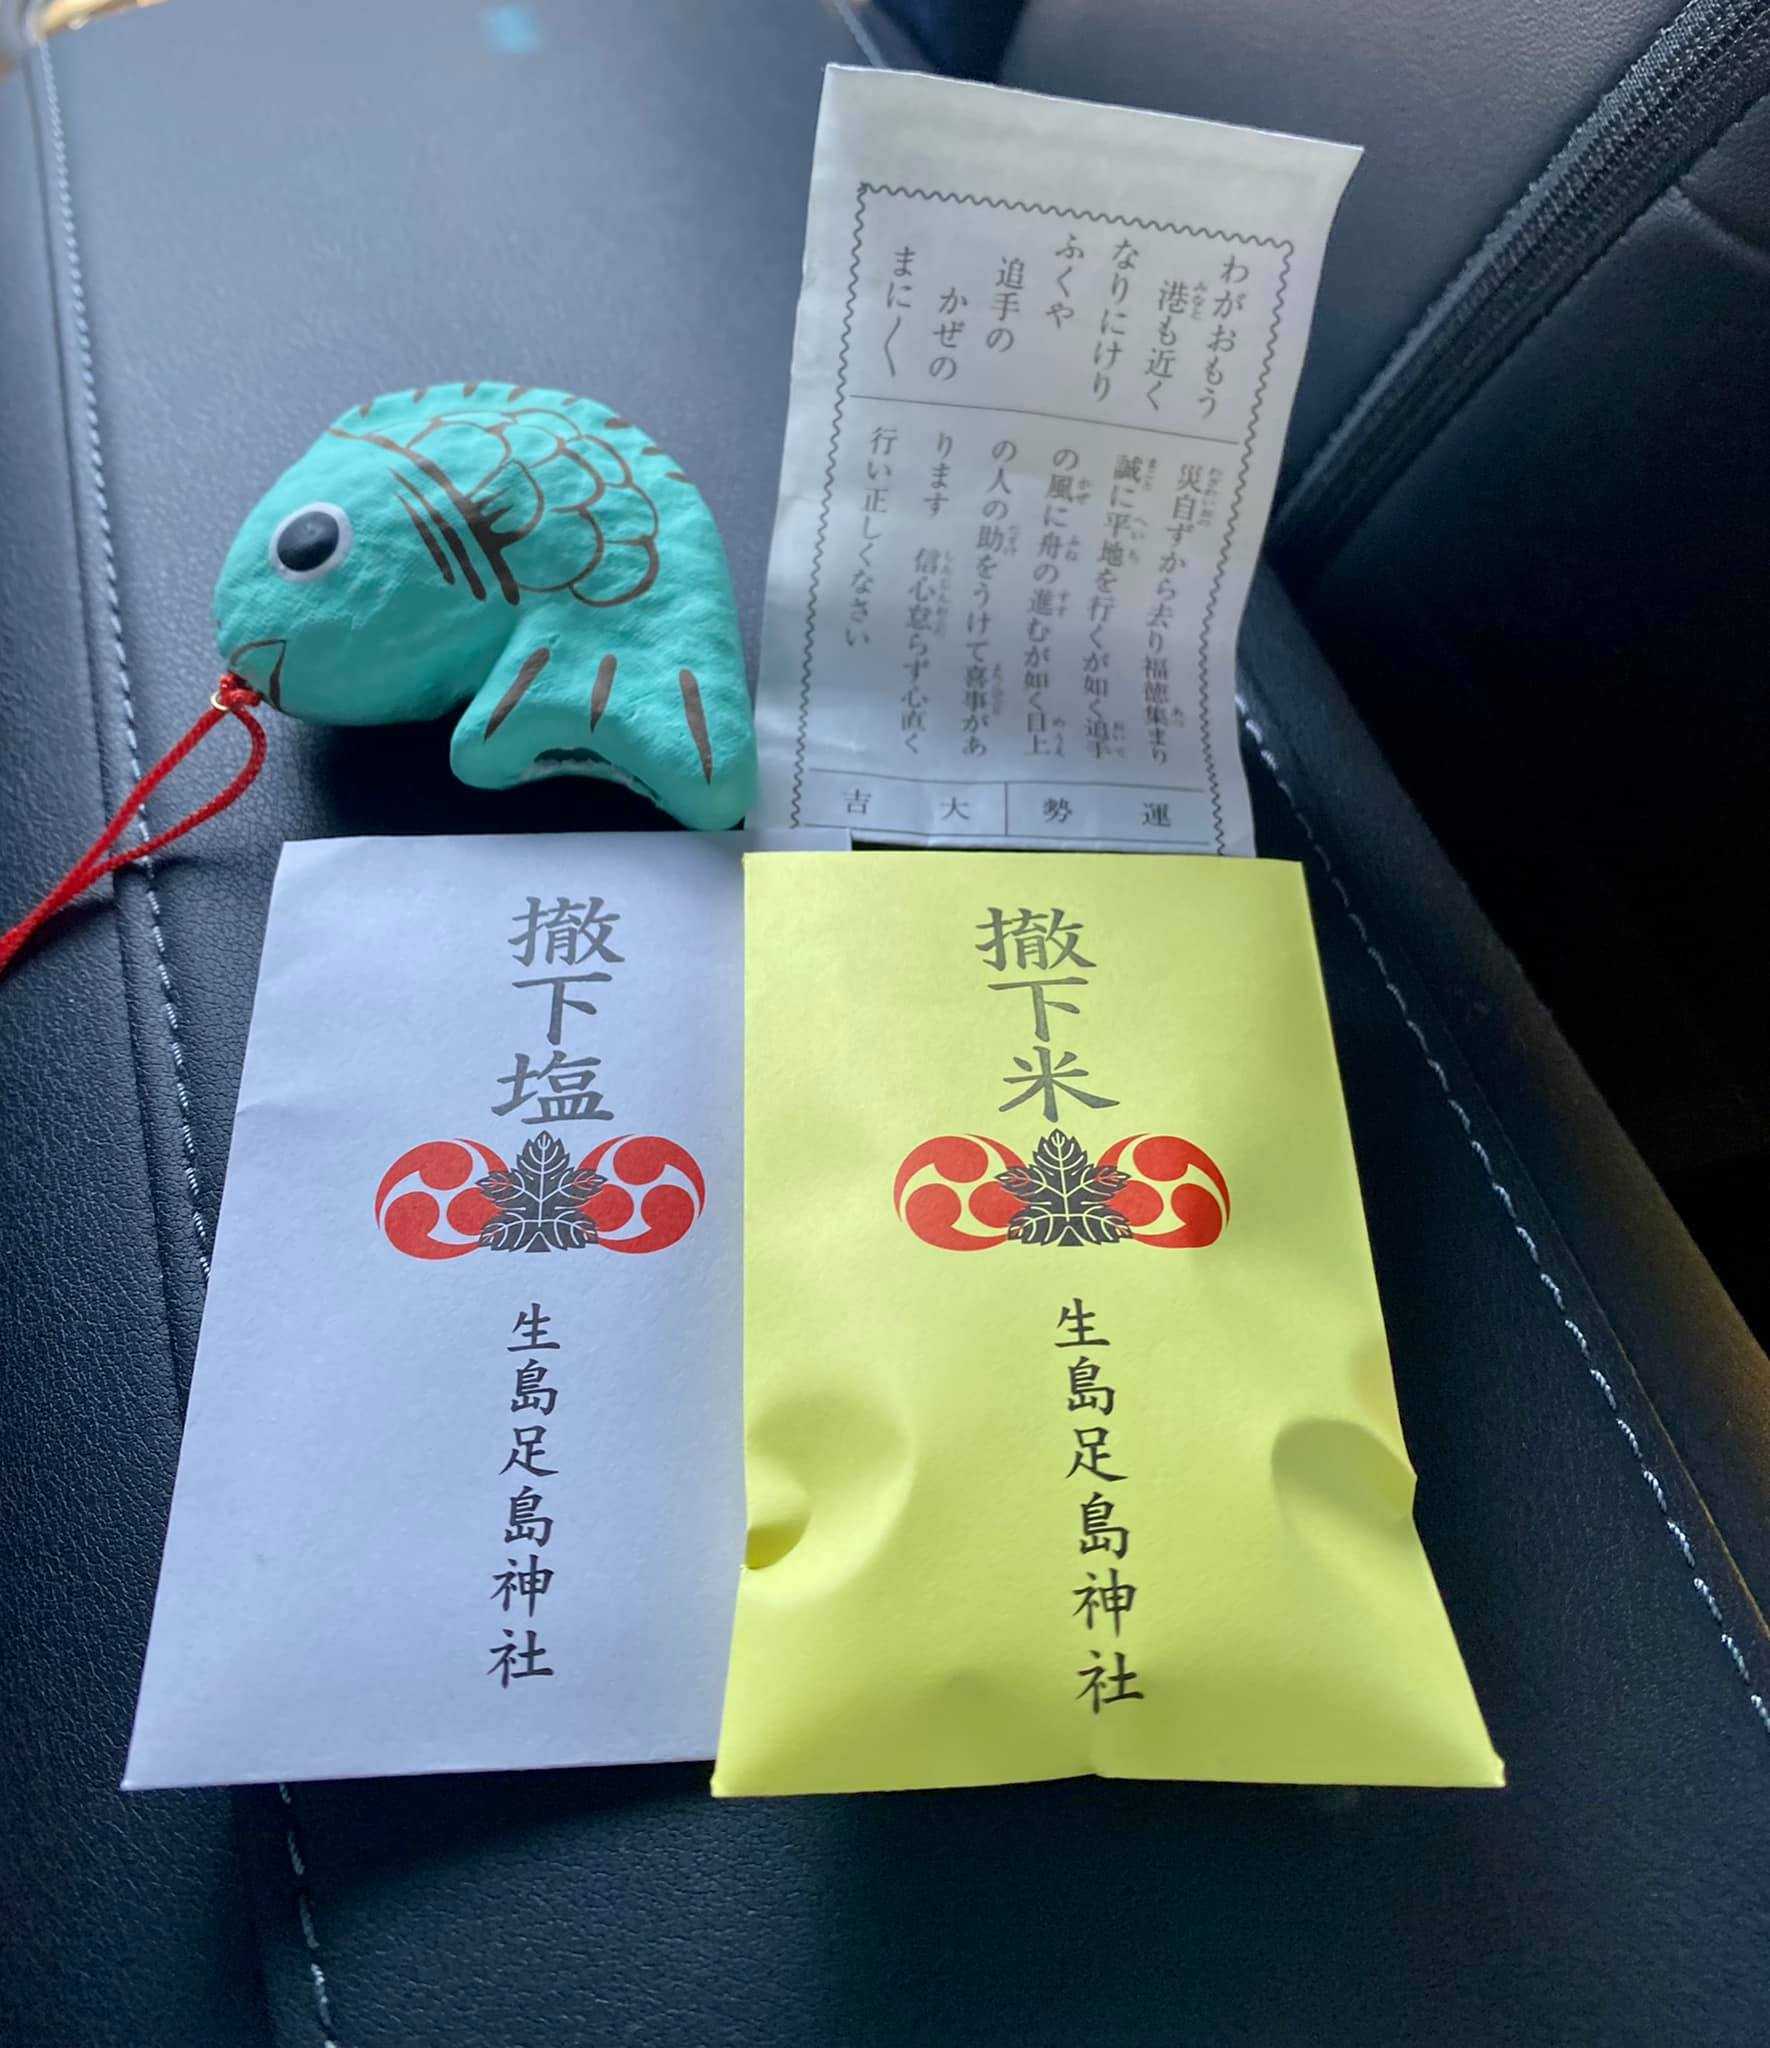 わがおもう
港も近く
なりにけり
ふくや
追手の
かぜの
まに〱
災自ずから去り福徳集まり
誠に平地を行くが如く追手
の風に舟の進むが如く目上
の人の助をうけて喜事があ
ります　信心怠らず心直く
行い正しくなさい
運勢　大吉
撤下塩
生島足島神社
撤下米
生島足島神社